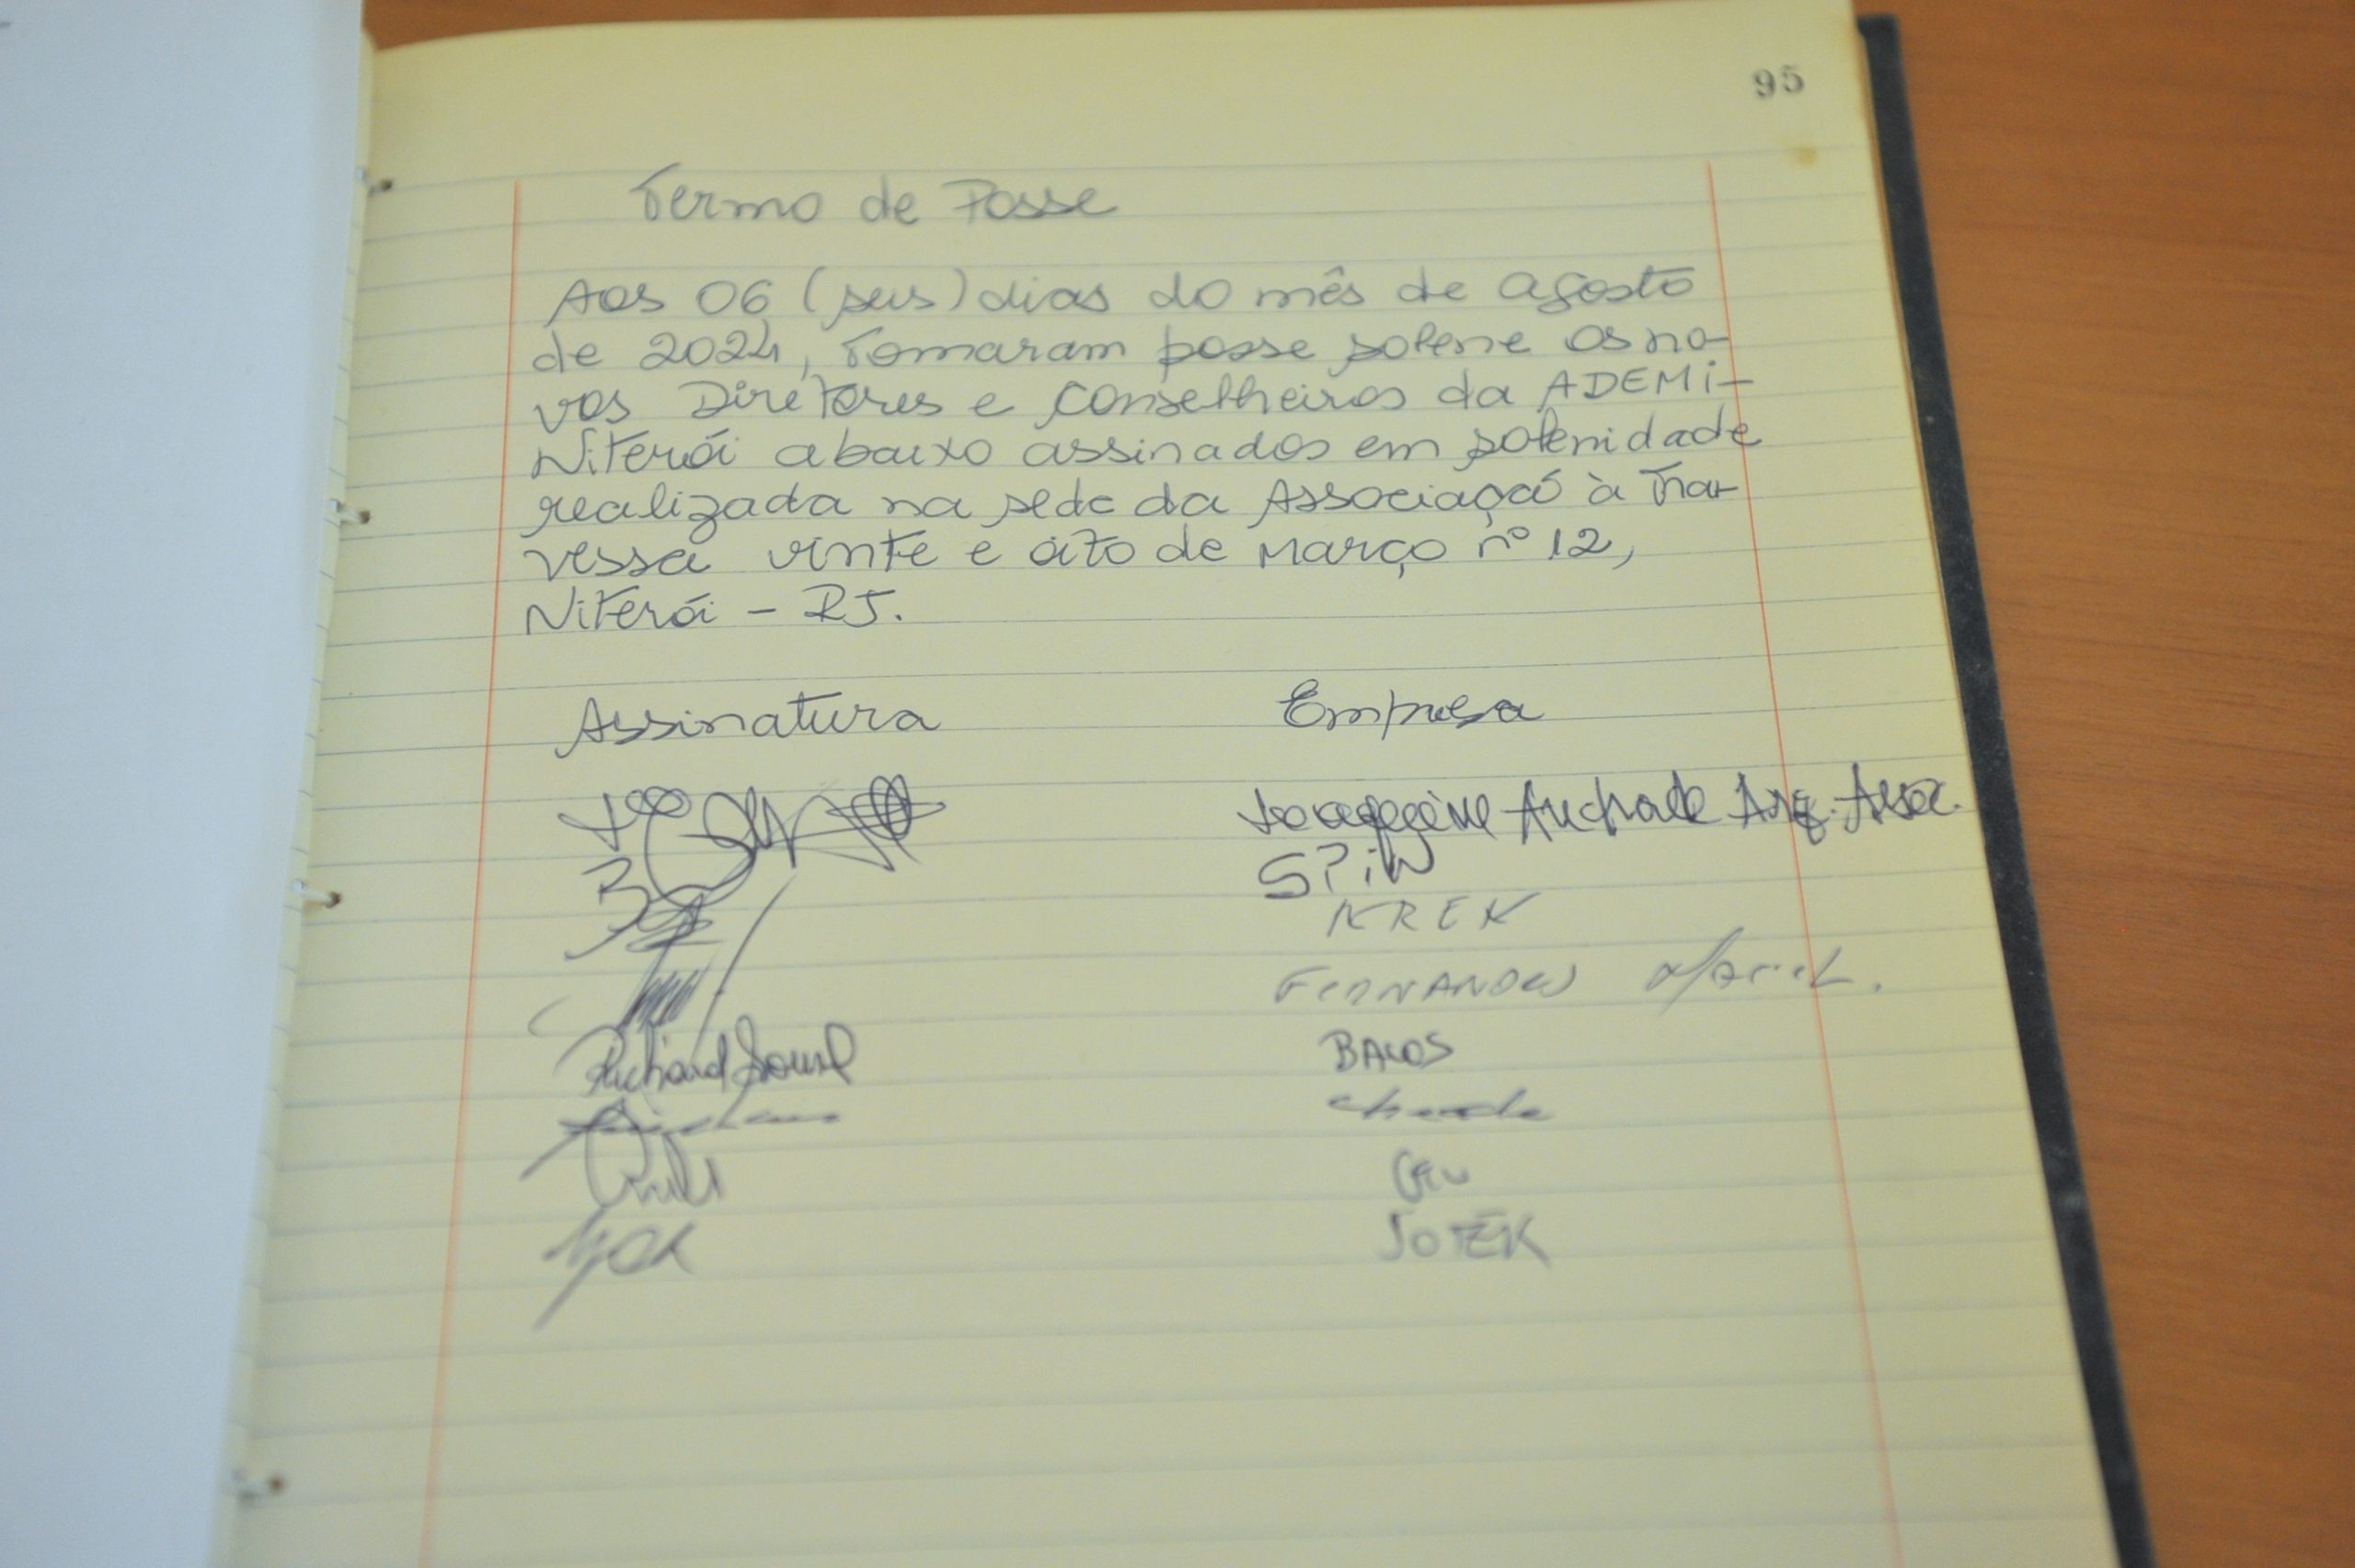 95
Termo de Posse
Aos 06 (seis) dias do mês de agosto
de 2024, tomaram posse solene os no-
vos Diretores e Conselheiros da ADEMI-
Niterói abaixo assinados em solenidade
realizada na sede da Associação à Tra-
vessa vinte e oito de Março nº 12,
Niterói - RJ.
Assinatura Empresa
Andrade Arq. Assoc.
SPIN
KREK
FERNANDES
Richard Sonsol BALOS
SOTEK